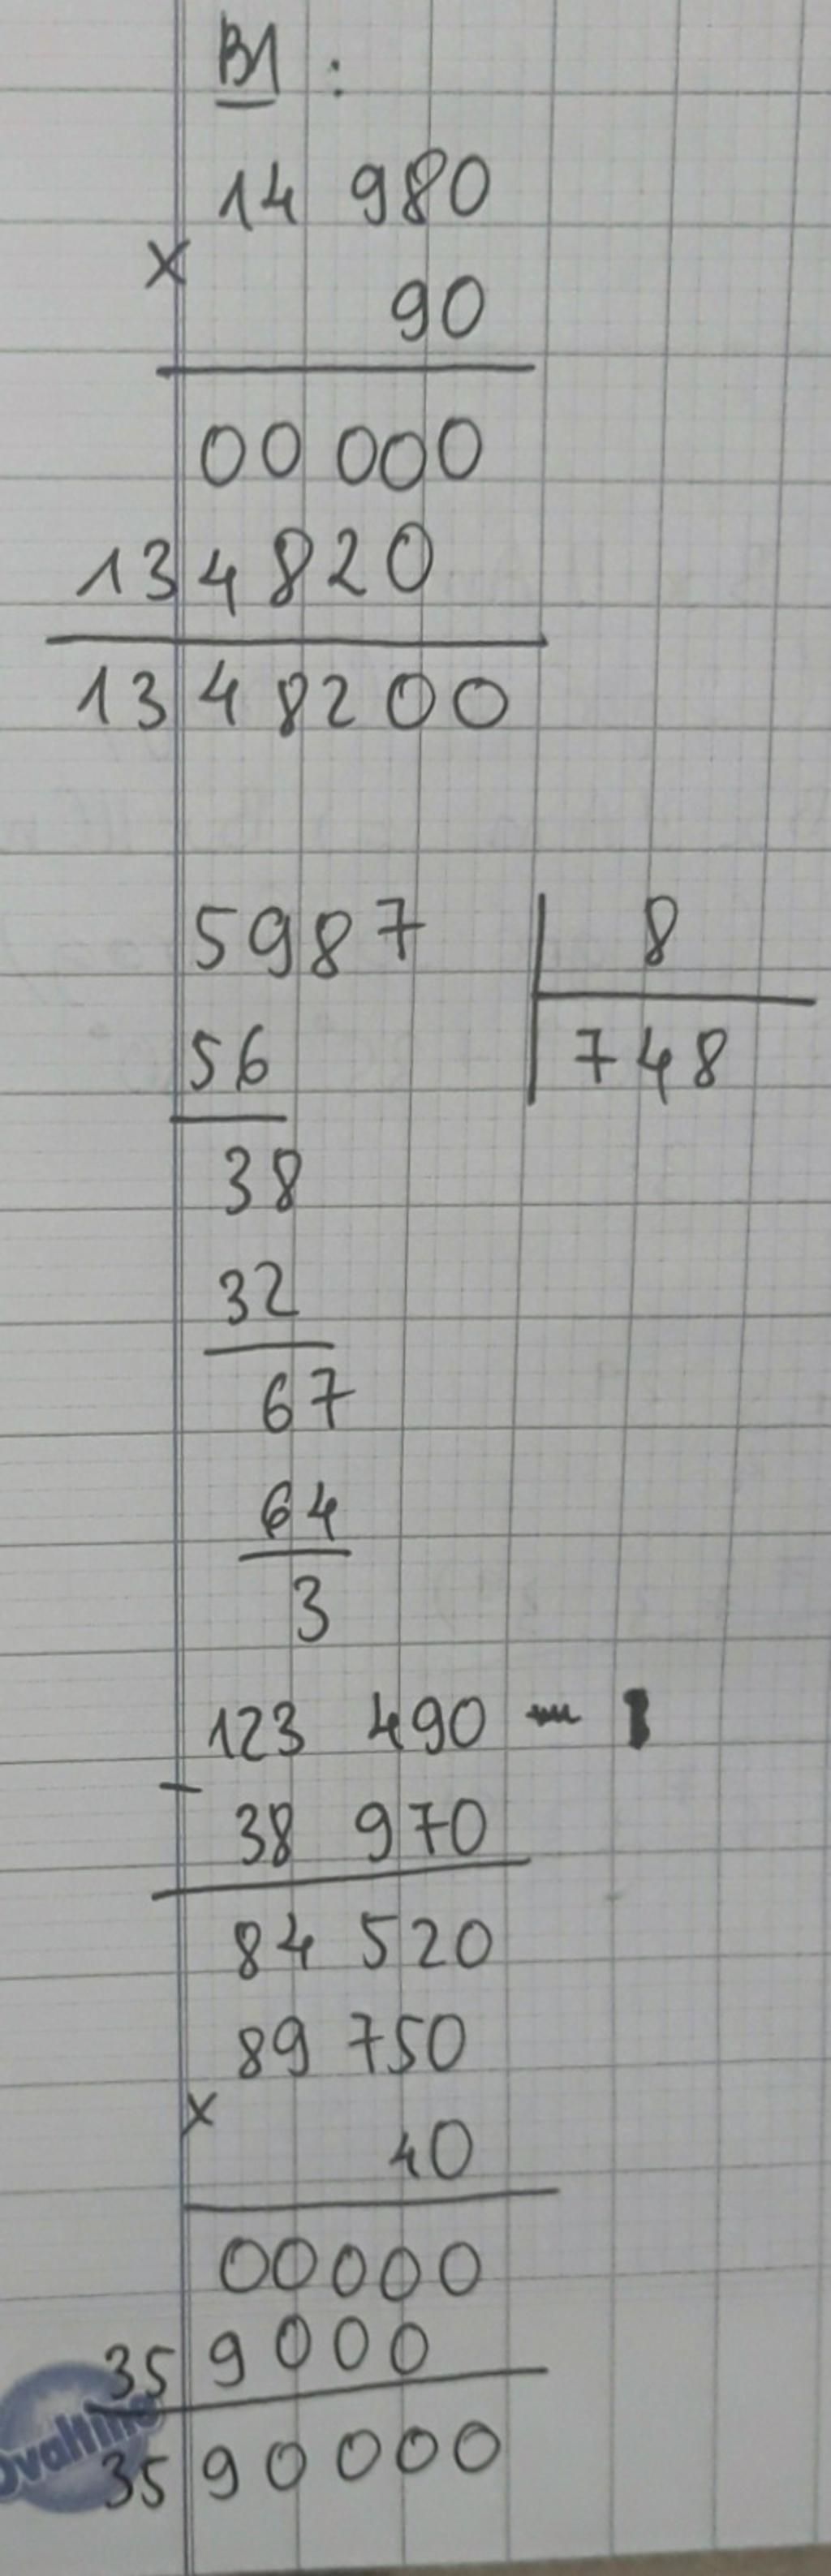 B1 :
14 980
×
90
00 000
13 4 8 2 0
13 4 8 2 0 0
5987 8
56 748
38
32
67
64
3
123 490 - 1
-
38 970
84 520
89 750
×
40
00000
35 9 0 0 0
ovaltine
35 9 0 0 0 0